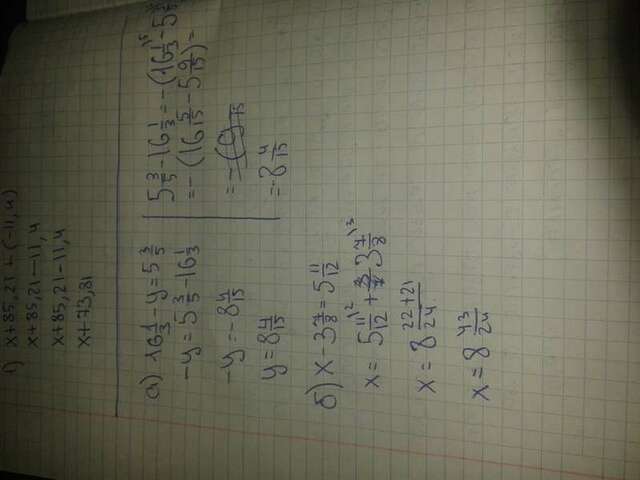 1) x+85,21+(-11,4)
x+85,21-11,4
x+85,21-11,4
x+73,81
а) 16 1/3 - y = 5 3/5
-y = 5 3/5 - 16 1/3
-y = -8 4/15
y = 8 4/15
5 3/5 - 16 1/3 = -(16 1/3 - 5
= -(16 5/15 - 5 9/15) =
= -8 4/15
б) x - 3 7/8 = 5 11/12
x = 5 11/12 + 3 7/8
x = 8 22+21/24
x = 8 43/24